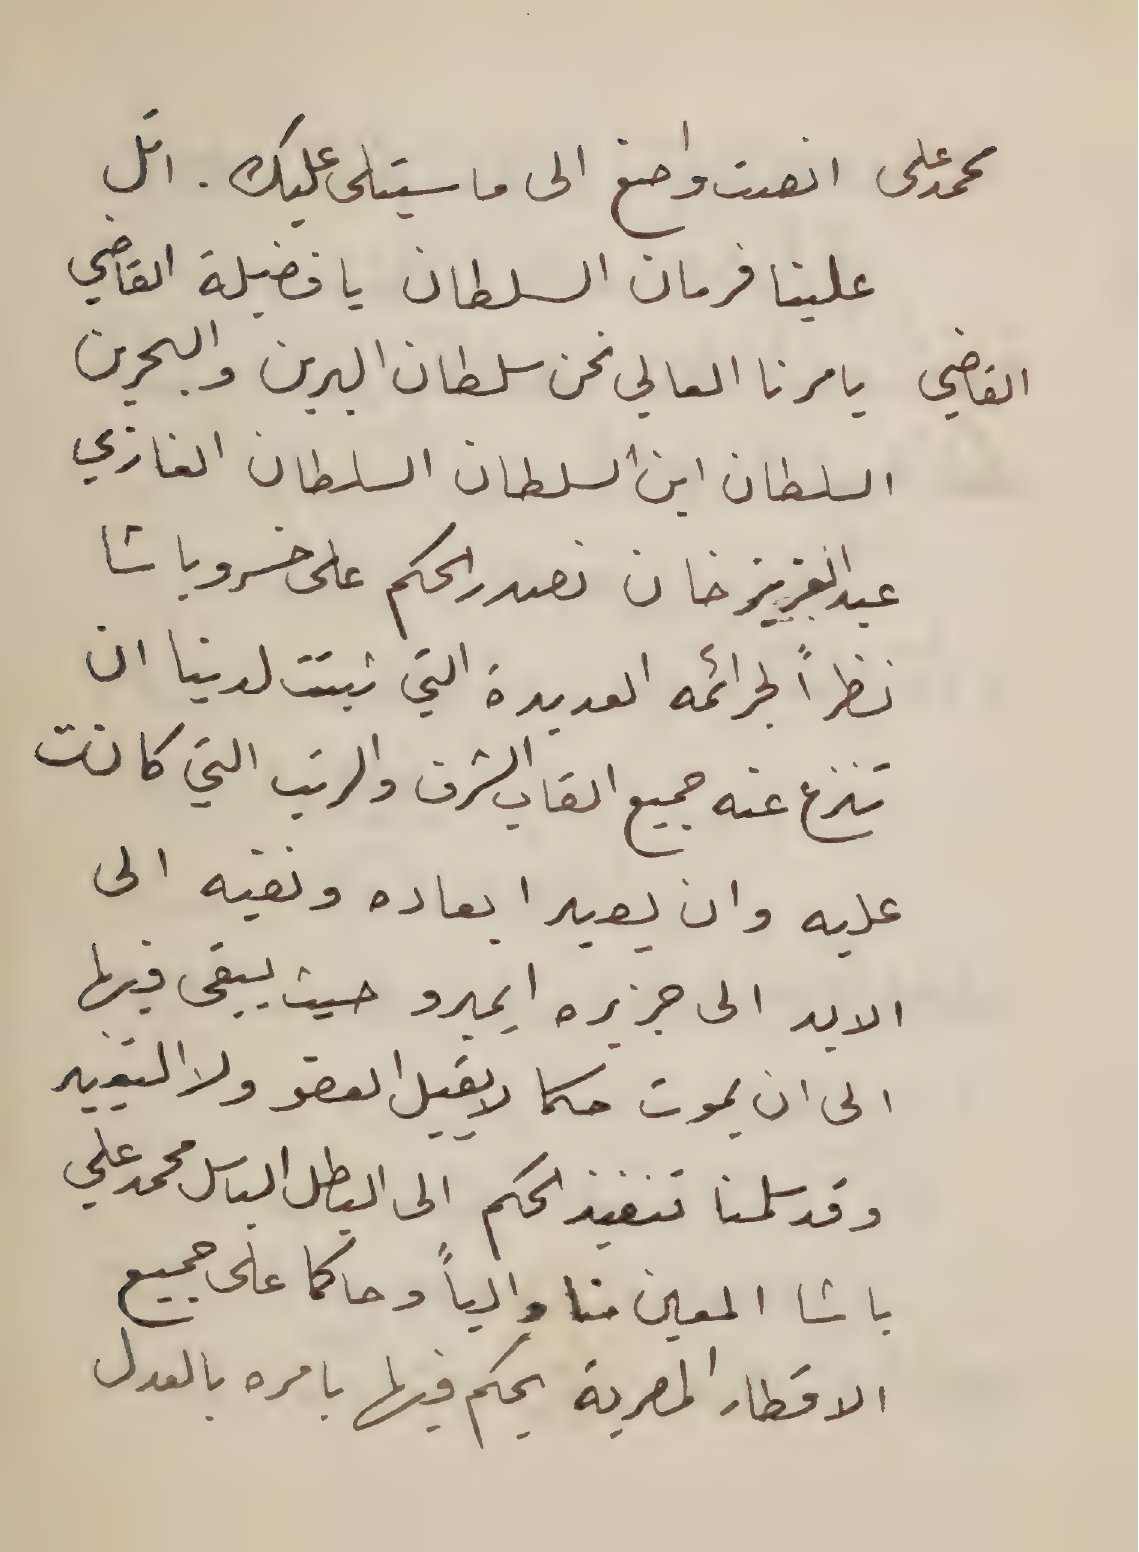 محمد على انصت واصغ الى ما سيتلى عليك . اتل
علينا فرمان السلطان يا فضيلة القاضي
القاضي يامرنا العالي نحن سلطان البرين والبحرين
السلطان ابن السلطان السلطان الغازي
عبد العزيز خان نصدر الحكم على خسرو باشا
نظراً لجرائمه العديدة التي ثبتت لدينا ان
تنزع عنه جميع القاب الشرف والرتب التي كانت
عليه وان يصير ابعاده ونفيه الى
الابد الى جزيره ايمبرو حيث يبقى فيها
الى ان يموت حكما لا يقبل العفو ولا التغيير
وقد سلمنا تنفيذ الحكم الى البطل الباسل محمد علي
باشا المعين منا والياً وحاكما على جميع
الاقطار المصرية يحكم فيها بامره بالعدل